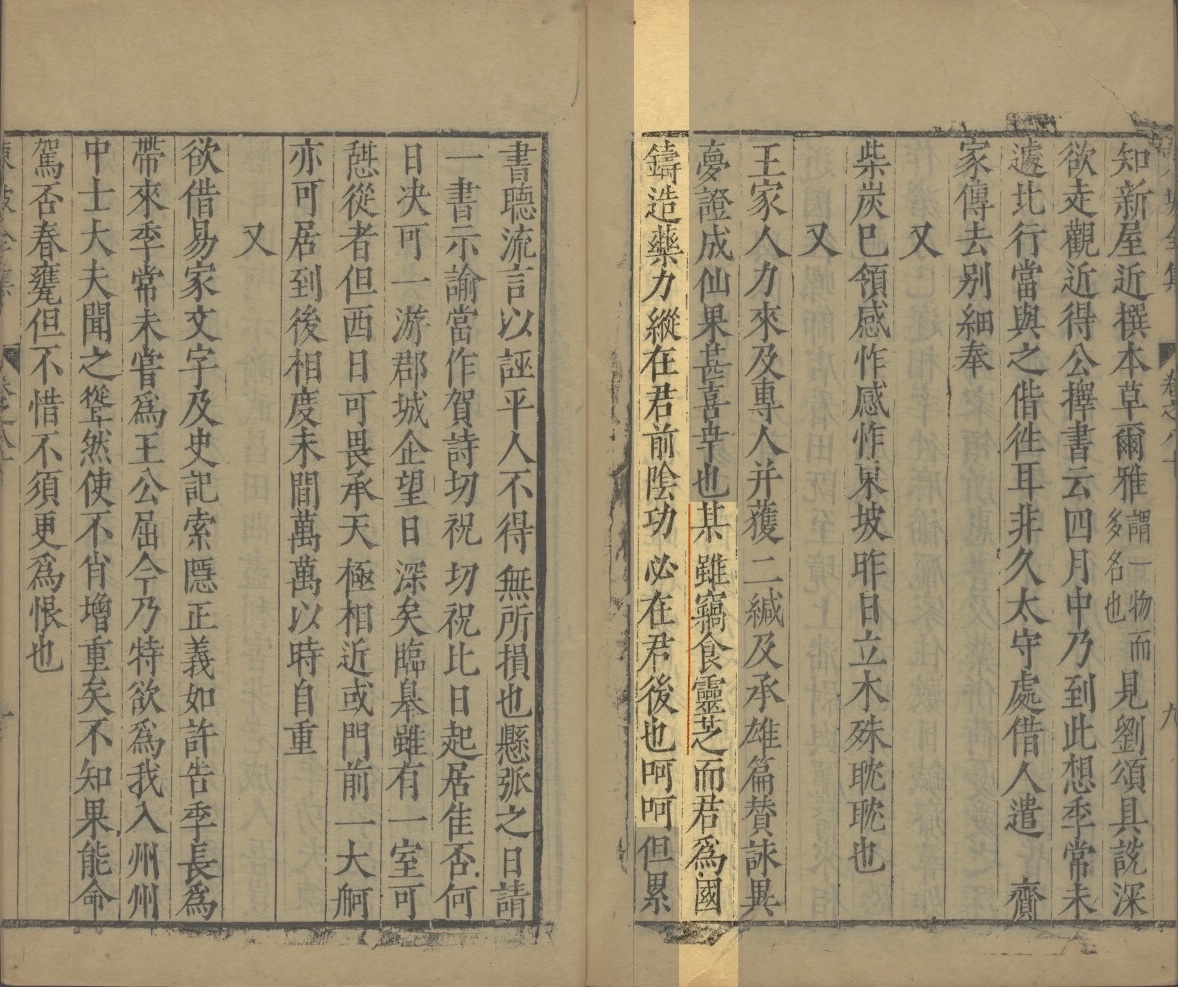 卷之八十
九
知新屋近撰本草爾雅謂一物而多名也見劉頌具說深
欲走觀近得公擇書云四月中乃到此想季常未
遽北行當與之偕徃耳非久太守處借人遣　齎
家傳去别細奉
又
柴炭巳領感怍感怍東坡昨日立木殊眈眈也
又
王家人力來及專人并獲二緘及承雄篇賛詠異
夢證成仙果甚喜幸也某雖竊食靈芝而君爲國
鑄造藥力縱在君前陰功必在君後也呵呵但累
書聽流言以誣平人不得無所損也懸弧之日請
一書示諭當作賀詩切祝切祝比日起居佳否何
日决可一游郡城企望日深矣臨臯雖有一室可
憇從者但西日可畏承天極相近或門前一大舸
亦可居到後相度未間萬萬以時自重
又
欲借易家文字及史記索隱正義如許告季長爲
帶來季常未甞爲王公屈今乃特欲爲我入州州
中士大夫聞之聳然使不肖增重矣不知果能命
駕否春甕但不惜不須更爲恨也